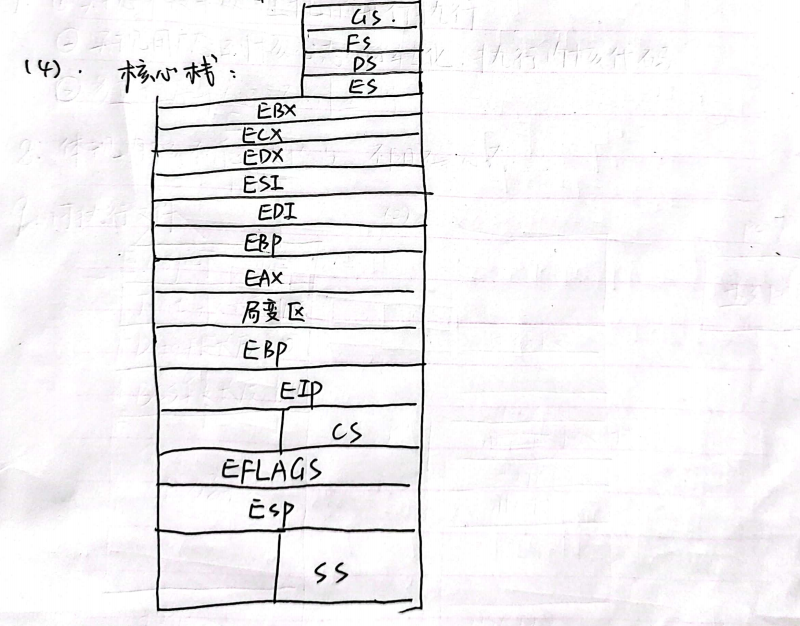 GS.
FS
(4). 核心栈:
DS
ES
EBX
ECX
EDX
ESI
EDI
EBP
EAX
局变区
EBP
EIP
CS
EFLAGS
ESP
SS